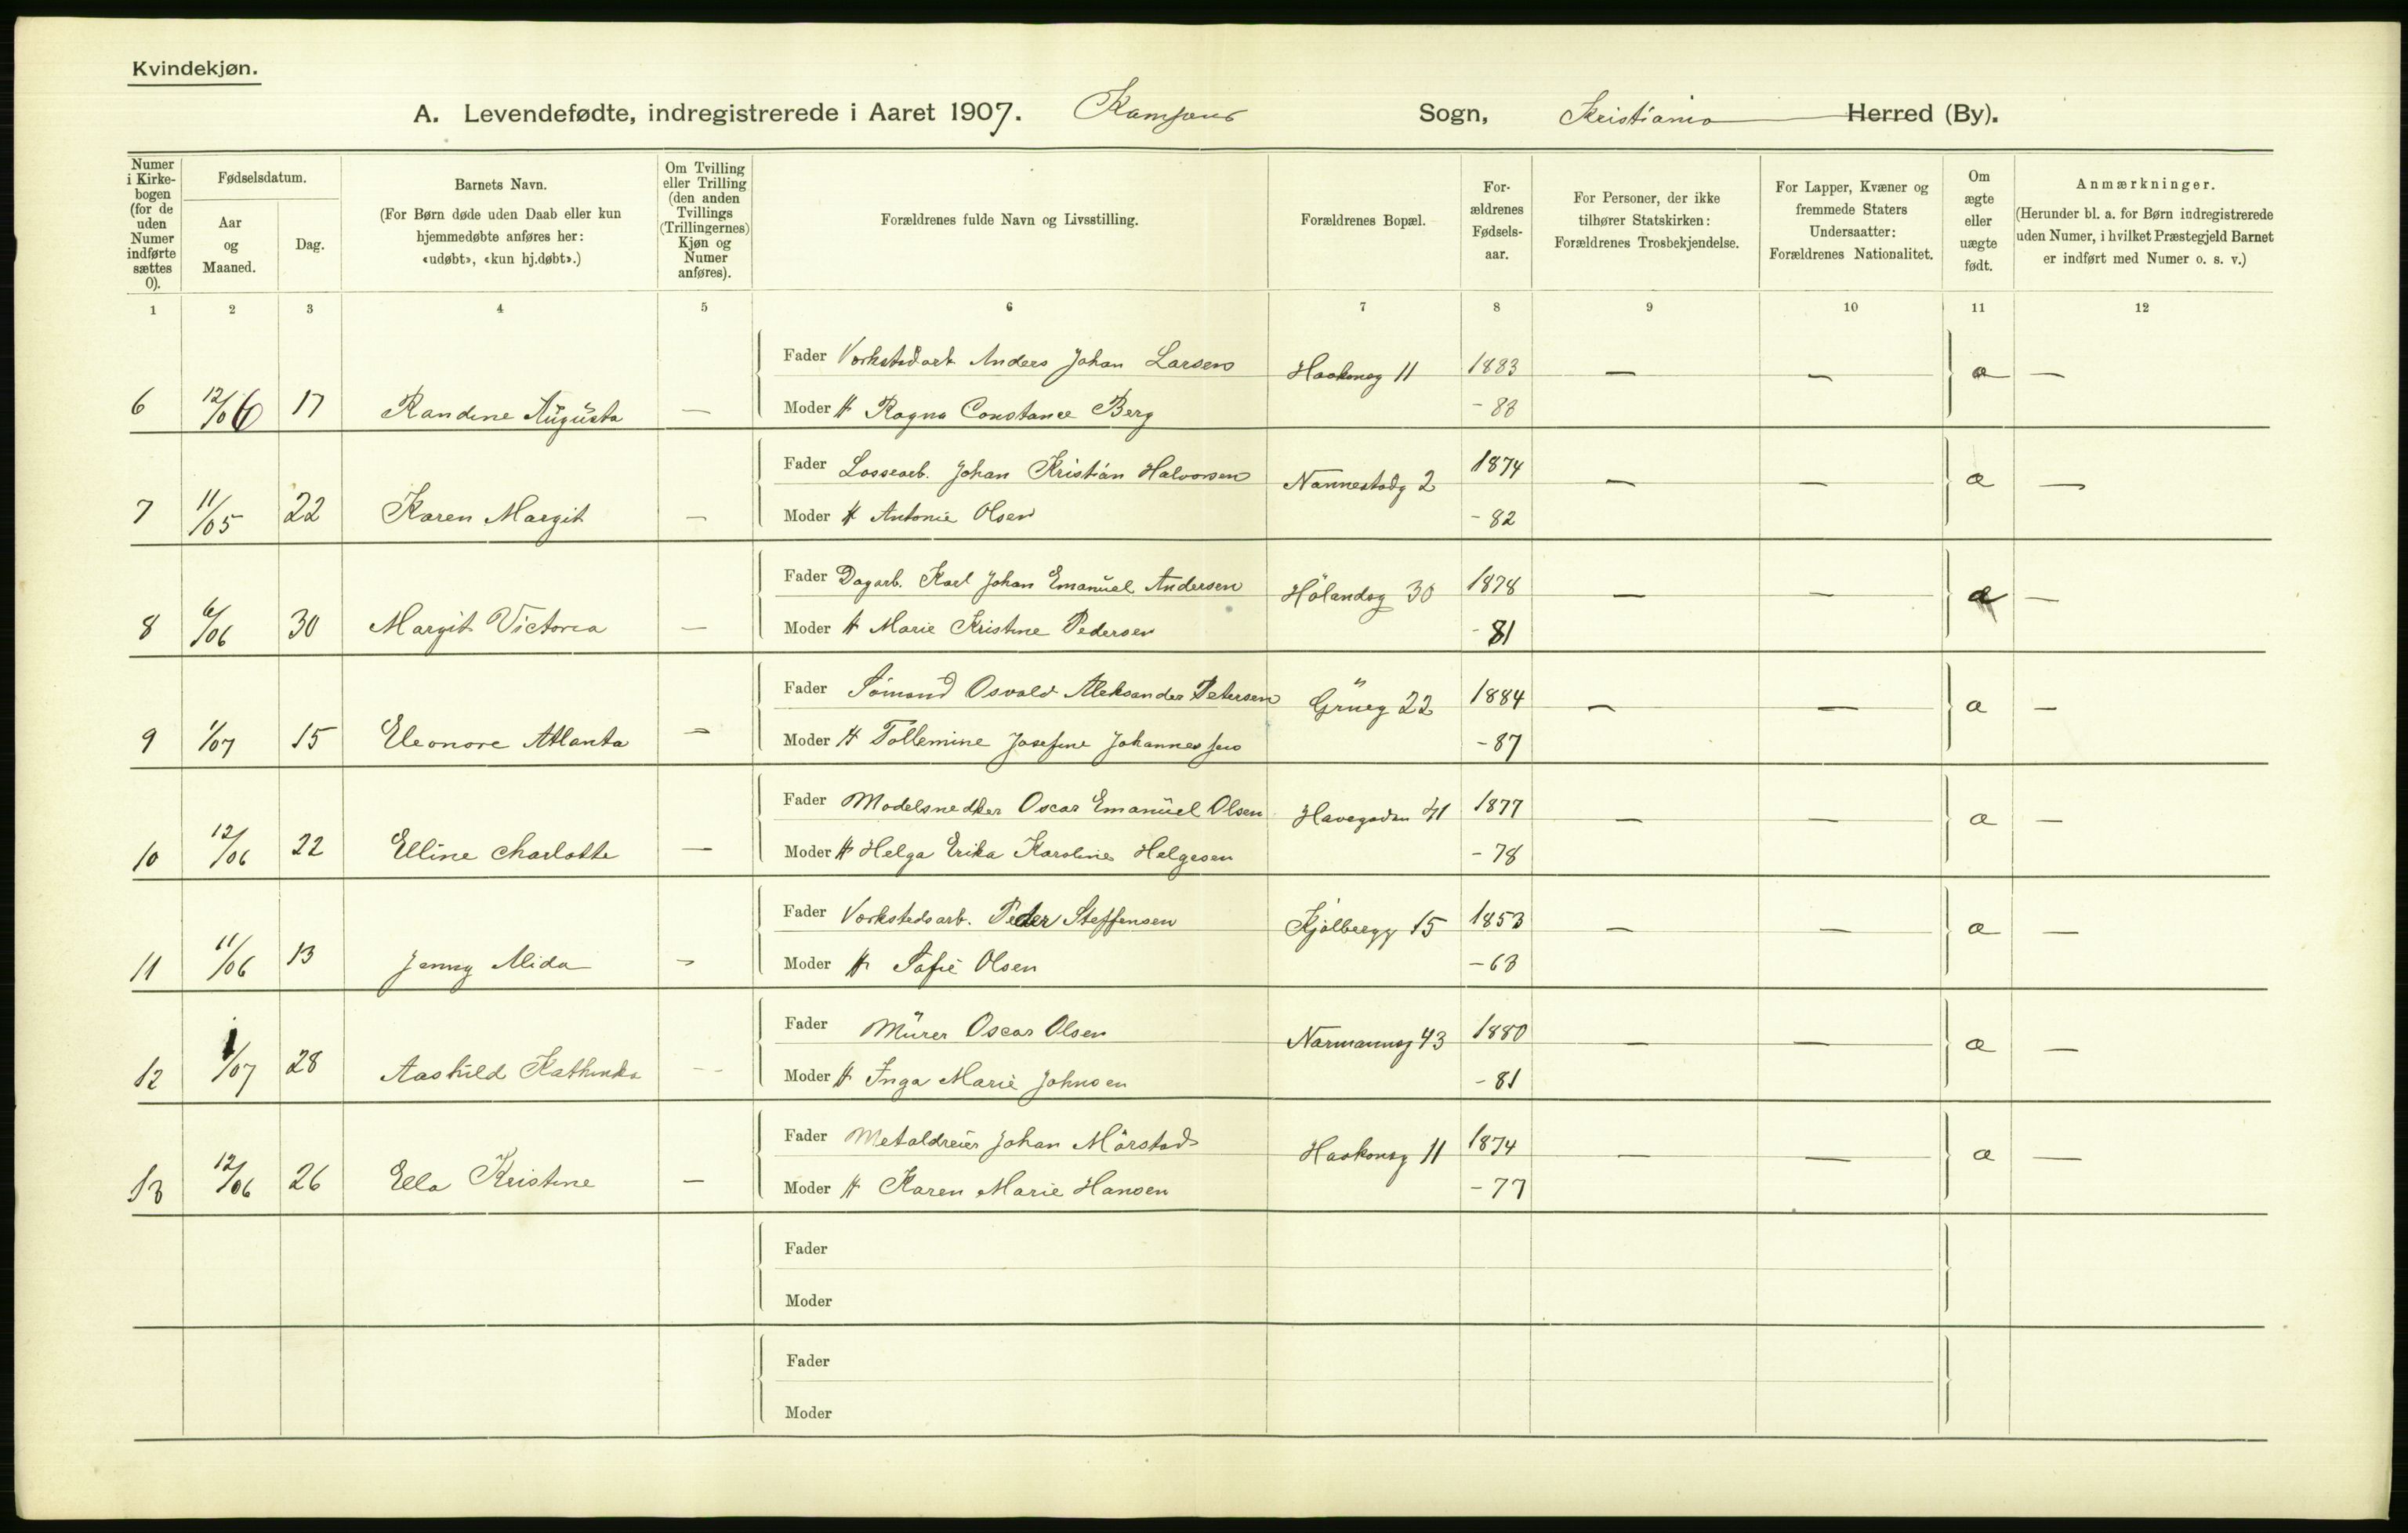 Kvindekjøn.
A. Levendefødte, indregistrerede i Aaret 1907. Kampens Sogn, Kristiania Herred (By).
Numer i Kirkebogen (for de uden Numer indførte sættes 0).
Fødselsdatum.
Aar og Maaned.
Dag.
Barnets Navn.
(For Børn døde uden Daab eller kun hjemmedøbte anføres her: «udøbt», «kun hj.døbt».)
Om Tvilling eller Trilling (den anden Tvillings (Trillingernes) Kjøn og Numer anføres).
Forældrenes fulde Navn og Livsstilling.
Forældrenes Bopæl.
Forældrenes Fødselsaar.
For Personer, der ikke tilhører Statskirken: Forældrenes Trosbekjendelse.
For Lapper, Kvæner og fremmede Staters Undersaatter: Forældrenes Nationalitet.
Om ægte eller uægte født.
Anmærkninger.
(Herunder bl. a. for Børn indregistrerede uden Numer, i hvilket Præstegjeld Barnet er indført med Numer o. s. v.)
1 2 3 4 5 6 7 8 9 10 11 12
Fader Værkstedarb. Anders Johan Larsen Haakonsg 11 1883 — — æ —
6 12/06 17 Randine Augusta — Moder H Ragna Constance Berg - 83
Fader Lossearb. Johan Kristian Halvorsen Nannestadg 2 1874 — — æ —
7 11/05 22 Karen Margit — Moder H Antonie Olsen - 82
Fader Dagarb. Karl Johan Emanuel Andersen Hölandsg 30 1878 — — æ —
8 6/06 30 Margit Victoria — Moder H Marie Kristine Pedersen - 81
Fader Sömand Osvald Aleksander Petersen Grueg 22 1884 — — æ —
9 1/07 15 Eleonore Atlanta — Moder H Tollemine Josefine Johannessen - 87
Fader Modelsnedker Oscar Emanuel Olsen Havegaden 41 1877 — — æ —
10 12/06 22 Elline Charlotte — Moder H Helga Erika Karoline Helgesen - 78
Fader Værkstedsarb. Peder Steffensen Kjölbergg 15 1853 — — æ —
11 11/06 13 Jenny Alida — Moder H Sofie Olsen - 63
Fader Murer Oscar Olsen Normannsg 43 1880 — — æ —
12 1/07 28 Aashild Kathinka — Moder H Inga Marie Johnsen - 81
Fader Metaldreier Johan Mörstad Haakonsg 11 1874 — — æ —
13 12/06 26 Ella Kristine — Moder H Karen Marie Hansen - 77
Fader
Moder
Fader
Moder